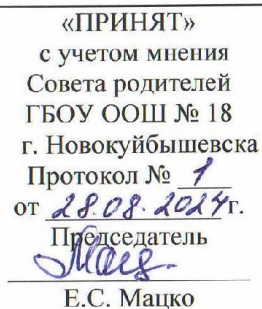 «ПРИНЯТ»
с учетом мнения
Совета родителей
ГБОУ ООШ № 18
г. Новокуйбышевска
Протокол № 1
от 28.08.2024г.
Председатель
Е.С. Мацко